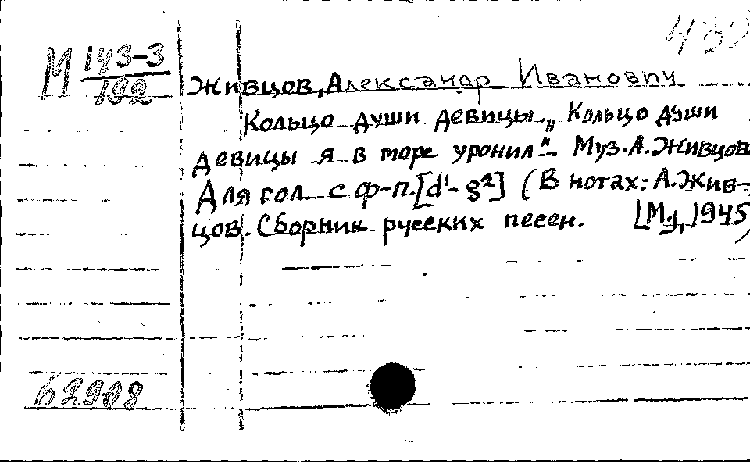 М 143-3
192
Живцов, Александр Иванович
Кольцо души девицы „ Кольцо души
девицы я в море уронил“ Муз. А. Живцов
Для гол. с ф-п. [d¹- g²] (В нотах: А. Жив-
цов. Сборник русских песен. [М.,] 1945
62908